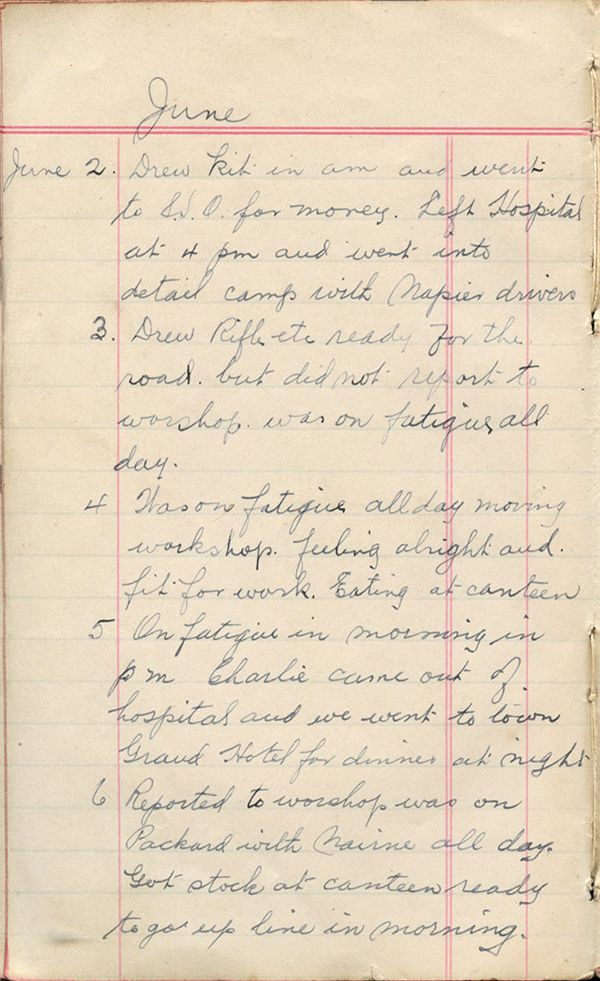 June
June 2. Drew kit in am and went
to S.S.O. for money. Left Hospital
at 4 pm and went into
detail camp with Napier drivers
3. Drew Rifle etc ready for the
road. but did not report to
worshop. was on fatigue all
day.
4 Was on fatigue all day moving
workshop. feeling alright and.
fit for work. Eating at canteen
5 On fatigue in morning in
pm Charlie came out of
hospital and we went to town
Grand Hotel for dinner at night
6 Reported to worshop was on
Packard with Nairne all day.
Got stock at canteen ready
to go up line in morning.